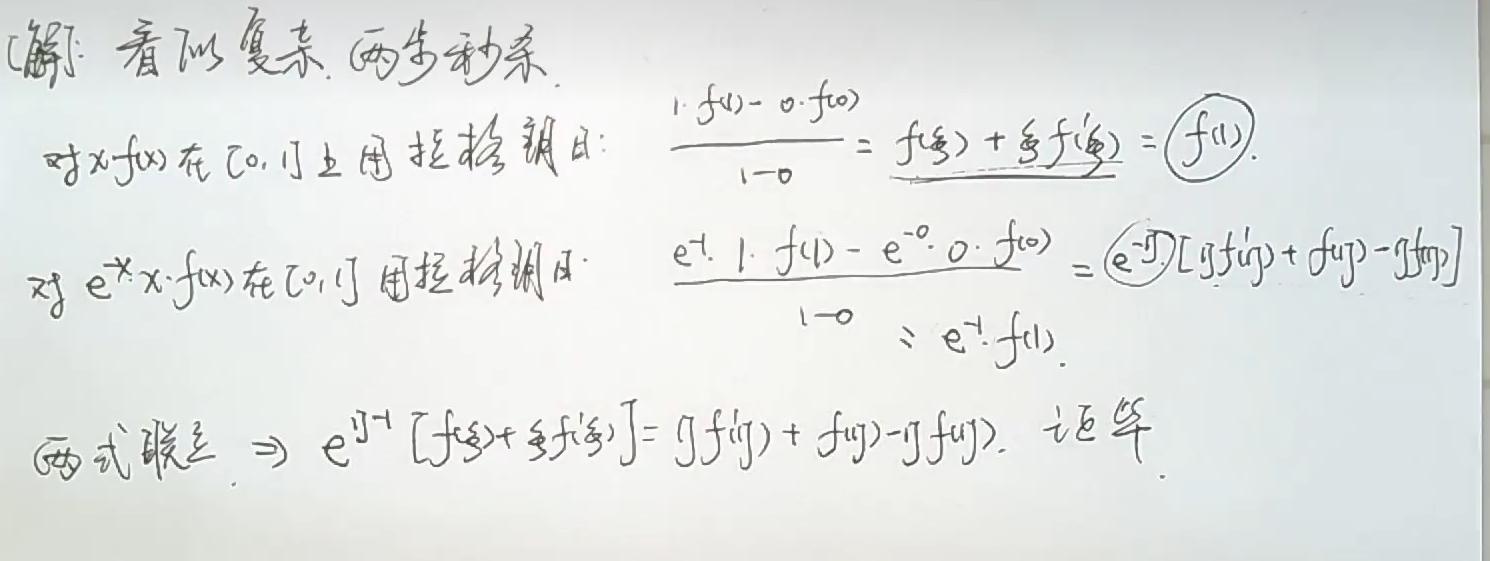 [解]: 看似复杂. 两步秒杀.
对x·f(x)在[0,1]上用拉格朗日: (1·f(1) - 0·f(0))/(1-0) = f(ξ) + ξf'(ξ) = f(1).
对e^{-x}·x·f(x)在[0,1]用拉格朗日: (e^{-1}·1·f(1) - e^{-0}·0·f(0))/(1-0) = e^{-η}[ηf'(η) + f(η) - ηf(η)]
= e^{-1}·f(1).
两式联立. ⇒ e^{η-1}[f(ξ) + ξf'(ξ)] = ηf'(η) + f(η) - ηf(η). 证毕.